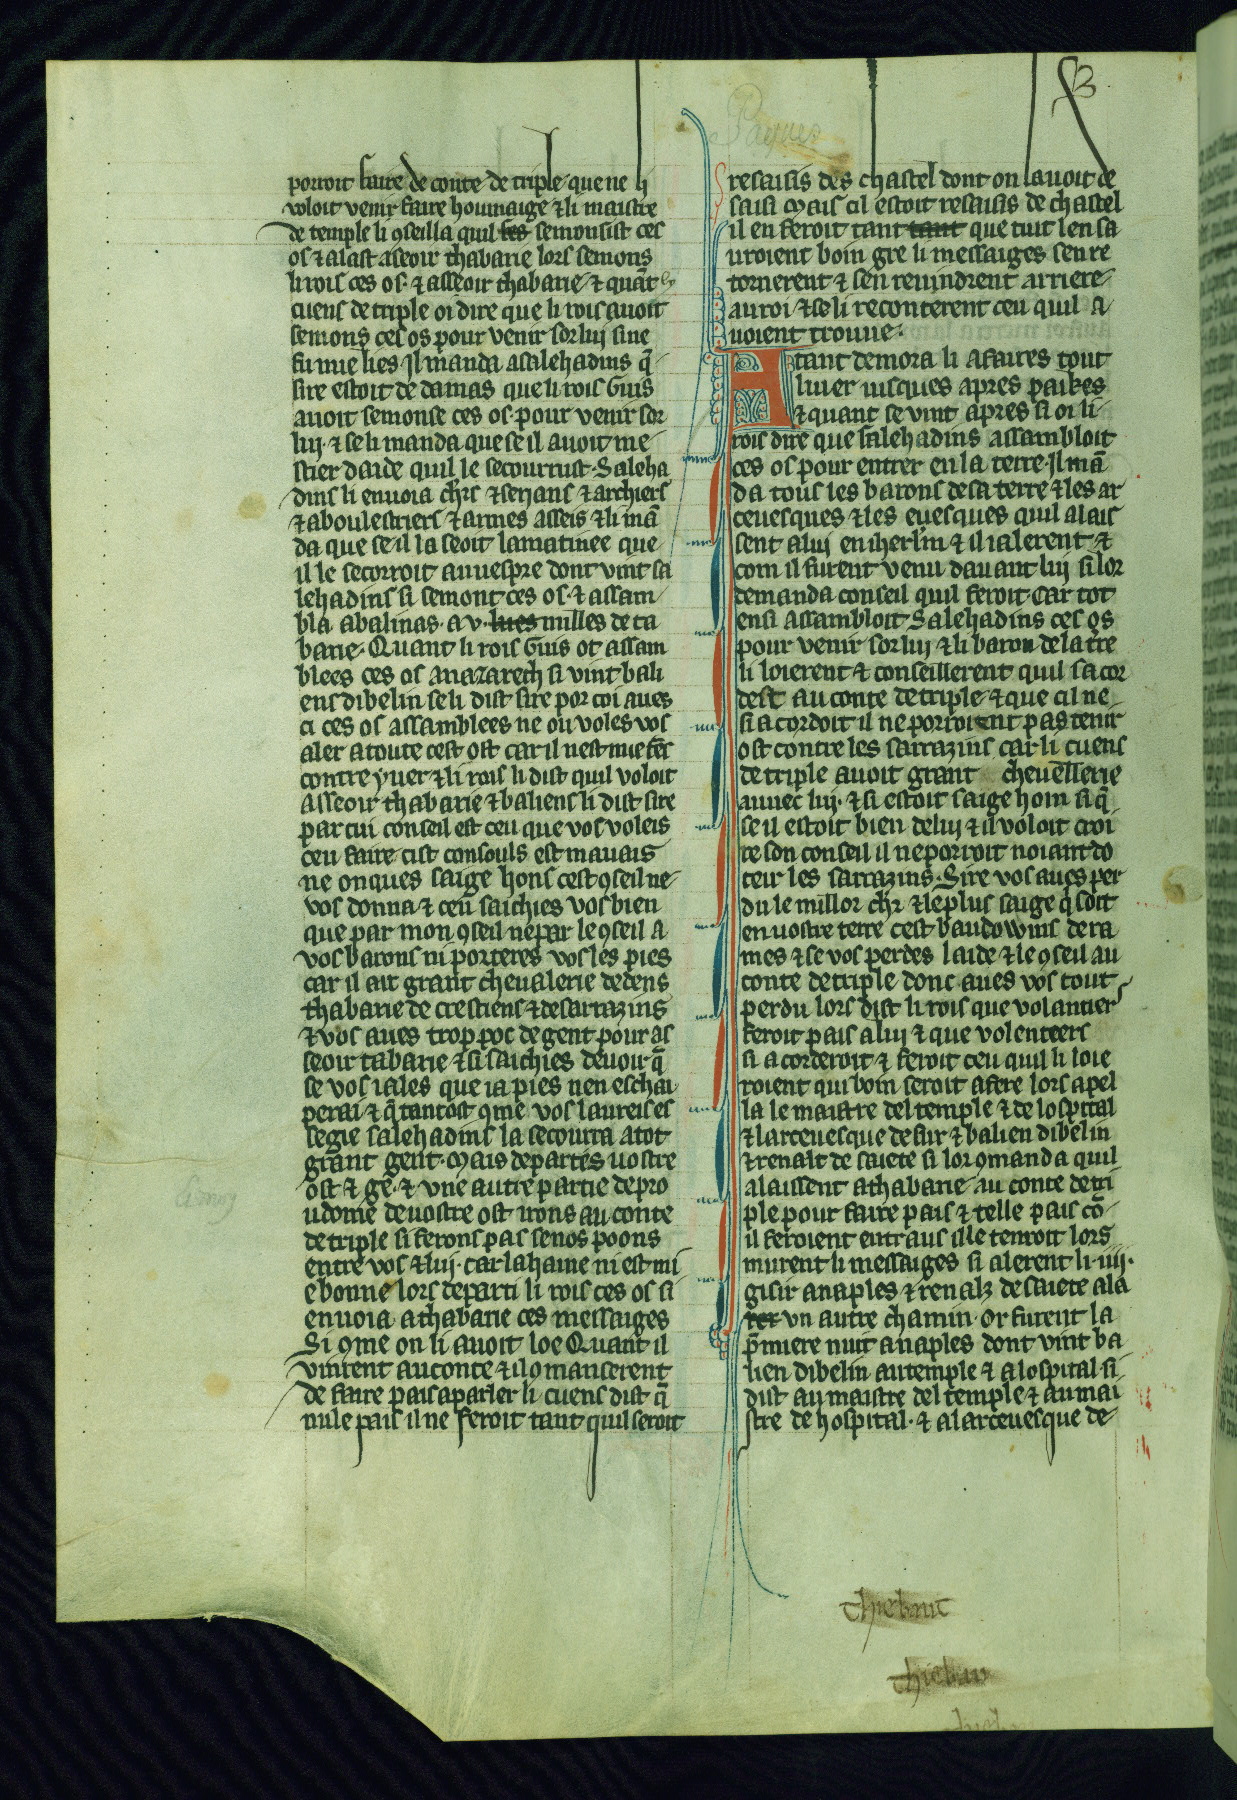 porroit faire de conte de triple que ne li
voloit venir faire hommaige ⁊ li maistre
de temple li ꝯseilla quil fes semonsist ces
os ⁊ alast aseoir thabarie lors semons
li rois ces os · ⁊ asseoir thabarie · ⁊ quāt ly
cuens de triple oi dire que li rois auoit
semons ces os pour venir sor luj si ne
fu mie lies · Jl manda a salehadins q̄
sire estoit de damas que li rois Guis
auoit semonse ces os · pour venir sor
luj · ⁊ se li manda que se il auoit me
stier daide quil le secourrust · Saleha
dins li enuoia chrs ⁊ serians ⁊ archiers
⁊ aboulestriers ⁊ armes asseis ⁊ li mā
da que se il la seoit lamatinee que
il le secorroit au uespre dont vint sa
lehadins si semont ces os · ⁊ assam
bla abalinas · a · v · lues milles de ta
barie · Quant li rois Guis ot assam
blees ces os anazarech si vint bali
ens dibelin se li dist sire por coi aues
ci ces os assamblees ne ou voles vos
aler a toute cest ost car il nest mie tēs
contre yuer ⁊ li rois li dist quil voloit
asseoir thabarie ⁊ baliens li dist sire
par cui conseil est ceu que vos voleis
ceu faire cist consouls est mauais
ne onques saige hons cest ꝯseil ne
vos donna ⁊ ceu saichies vos bien
que par mon ꝯseil ne par le ꝯseil a
vos barons ni porteres vos les pies
car il ait grant cheualerie dedens
thabarie de crestiens ⁊ de sarrazins
⁊ vos aues trop poc de gent pour as
seoir tabarie ⁊ si saichies deuoir q̄
se vos i ales que ia pies nen eschai
perai ⁊ q̄ tantost ꝯme vos laureis es
segie salehadins la secourra atot
grant gent · Mais departes uostre
ost ⁊ ge · ⁊ vne autre partie de pro
udome de uostre ost irons au conte
de triple si ferons pais se nos poons
entre vos ⁊ luj · car la haine ni est mi
e bonne lors departi li rois ces os si
enuoia athabarie ces messaiges
Si ꝯme on li auoit loe Quant il
vinrent au conte ⁊ il ꝯmanserent
de faire pais a parler li cuens dist q̄
nule pais il ne feroit tant quil seroit
Paques
resaisis des chastel dont on lauoit de
saisi Mais cil estoit resaisis de chastel
il en feroit tant tant que tuit len sa
uroient boin gre li messaiges sen re
tornerent ⁊ sen reuindrent arriere
au roi · ⁊ se li reconterent ceu quil a
uoient trouue ·
Atant demora li afaires tout
liuer iusques apres paikes
⁊ quant se vint apres si oi li
rois dire que salehadins assambloit
ces os pour entrer en la terre · Jl mā
da tous les barons de sa terre ⁊ les ar
ceuesques ⁊ les euesques quil alais
sent a luj en iherlm ⁊ il i alerent · ⁊
com il furent venu dauant luj si lor
demanda conseil quil feroit car tot
ensi assambloit Salehadins ces os
pour venir sor luj ⁊ li baron de la tre
li loierent ⁊ conseillerent quil sacor
dest au conte de triple · ⁊ que cil ne
si acordoit il ne porroient pas tenir
ost contre les sarrazins car li cuens
de triple auoit grant cheuellerie
auuec luj · ⁊ si estoit saige hom si q̄
se il estoit bien de luj ⁊ il voloit croi
re son conseil il ne porroit noiant do
teir les sarrazins · Sire vos aues per
du le millor chr ⁊ le plus saige q̄ soit
en uostre terre cest baudowins de ra
mes ⁊ se vos perdes laide ⁊ le ꝯseil au
conte de triple donc aues vos tout
perdu lors dist li rois que volantiers
feroit pais a luj ⁊ que volenteers
si acorderoit ⁊ feroit ceu quil li loie
roient qui boin seroit a fere lors apel
la le maistre del temple ⁊ de lospital
⁊ larceuesque de sur ⁊ balien dibelin
⁊ renalt de saiete si lor ꝯmanda quil
alaissent athabarie au conte de tri
ple pour faire pais ⁊ telle pais cō
il feroient entraus il le tenroit lors
murent li messaiges si alerent li · iiij ·
gisir anaples ⁊ renalz de saiete ala
rer vn autre chamin · or furent la
p̄miere nuit anaples dont vint ba
lien dibelin au temple ⁊ a lospital si
dist au maistre del temple ⁊ au mai
stre de hospital · ⁊ a larceuesque de
thiebaut
thiebau